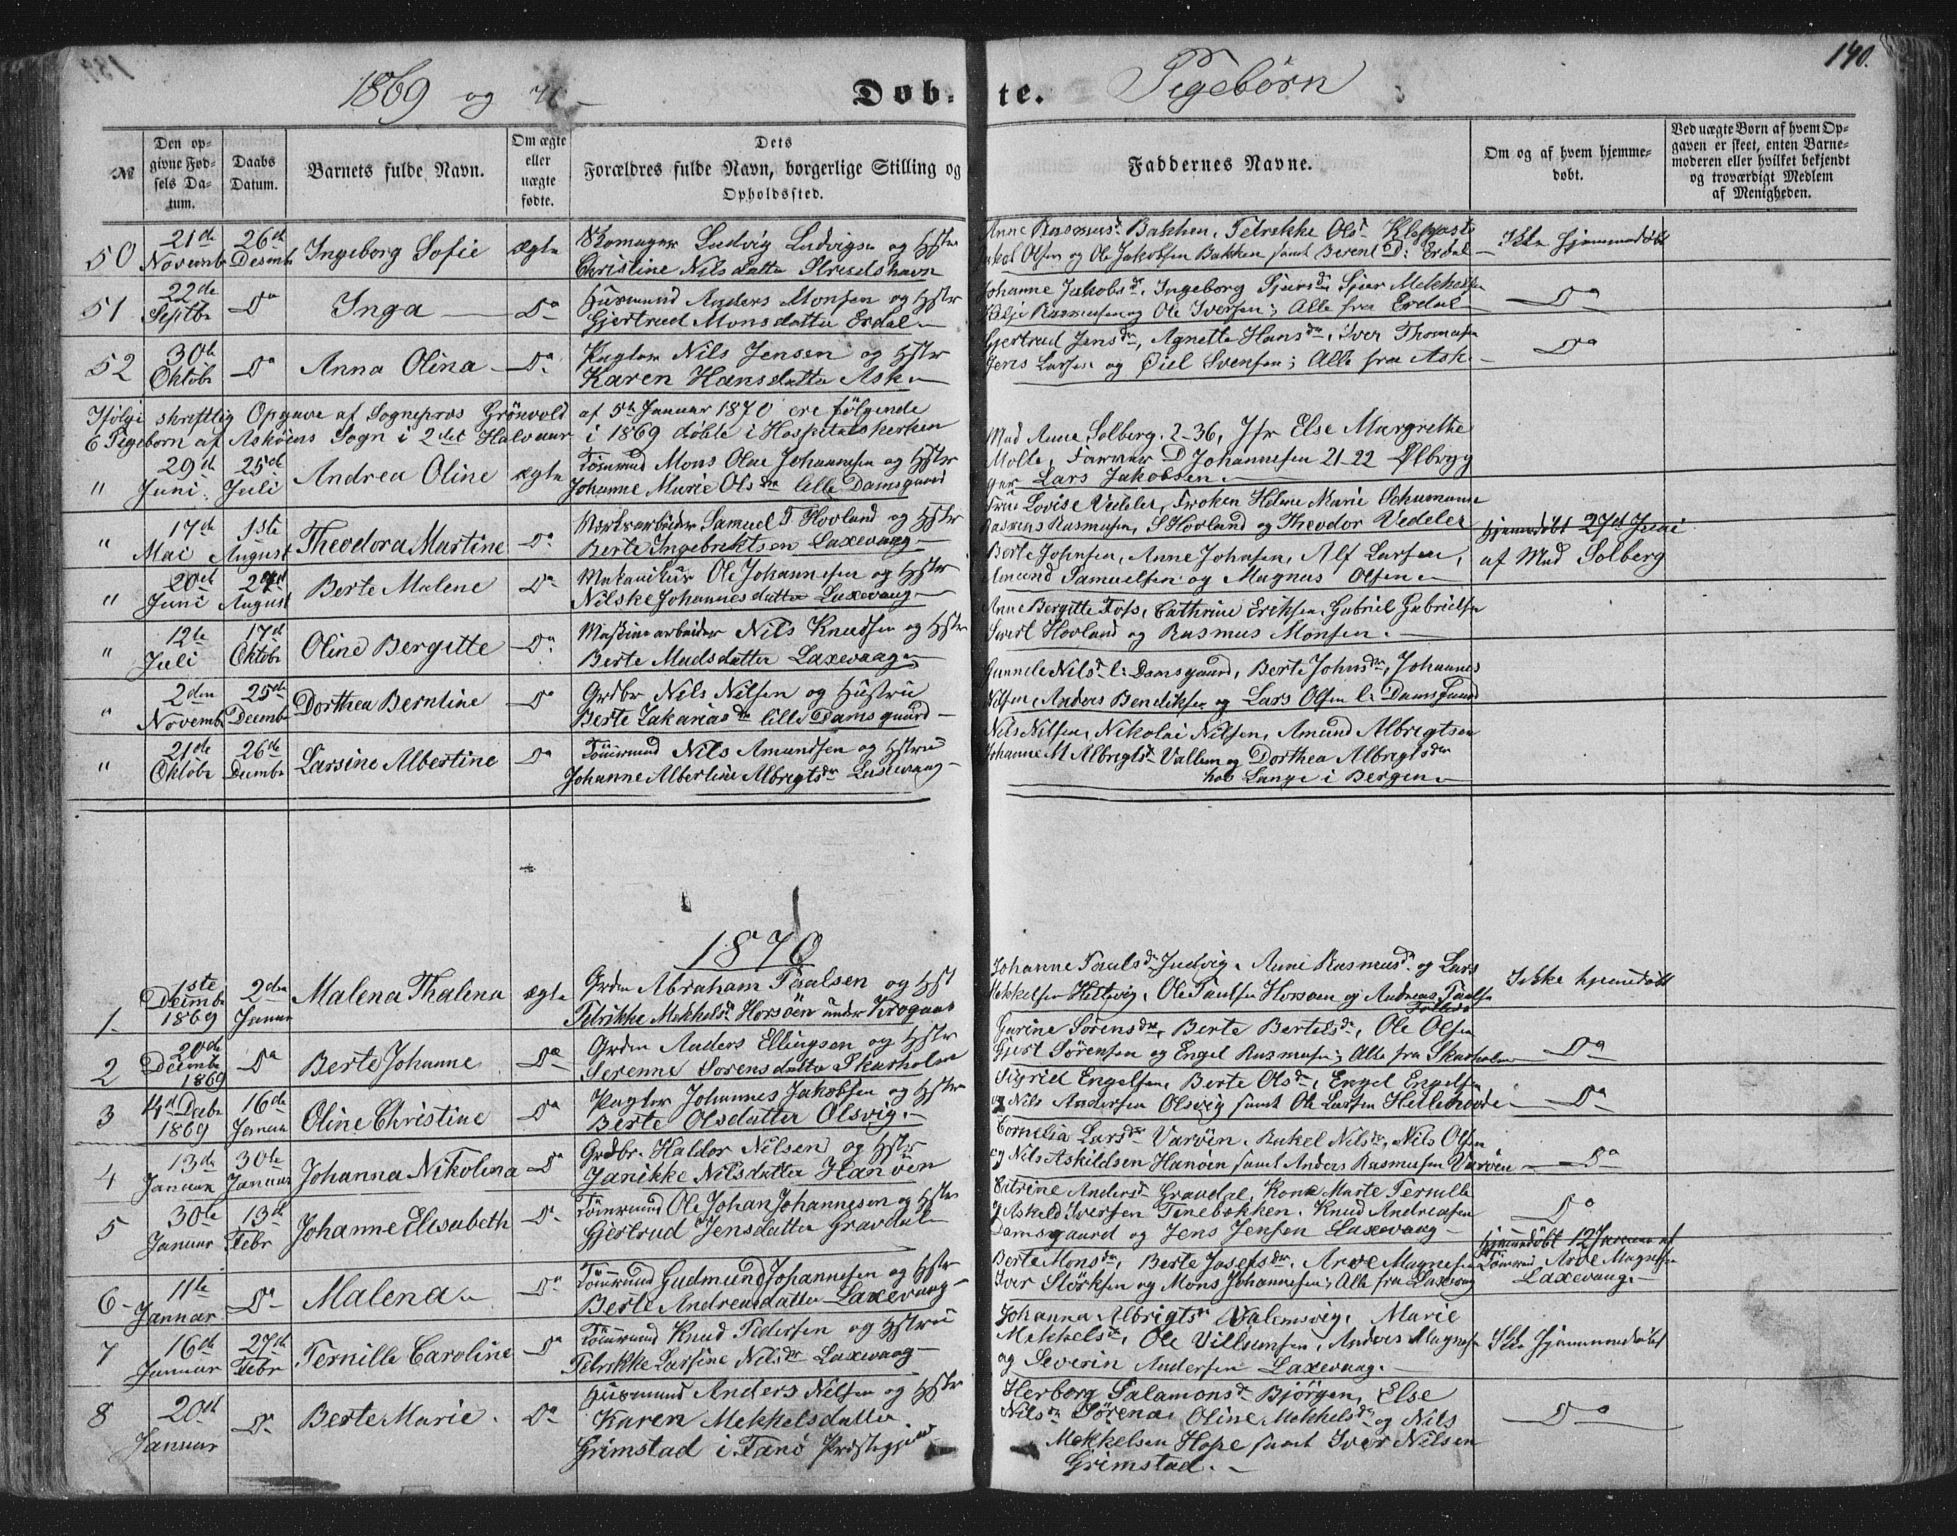 140.
1869 og 70
Døb-te. Pigebørn
№
Den opgivne Fødsels Datum.
Daabs Datum.
Barnets fulde Navn.
Om ægte eller uægte fødte.
Dets Forældres fulde Navn, borgerlige Stilling og Opholdssted.
Faddernes Navne.
Om og af hvem hjemmedøbt.
Ved uægte Børn af hvem Opgaven er skeet, enten Barnemoderen eller hvilket bekjendt og troværdigt Medlem af Menigheden.
50 21de Novembr 26de Desmbr Ingeborg Sofie ægte Skomager Ludvig Ludvigsen og Hstr
Christine Nilsdatter Strudshavn
Anne Rasmusdr Bakken, Petrikke Olsdr Kleppestø
Jakob Olsen og Ole Jakobsen Bakken samt Berent D: Erdal
Ikke hjemmedøbt
51 22de Septbr Do Inga Do Husmand Anders Monsen og Hstr
Gjertrud Monsdatter Erdal
Johanne Jakobsdr, Ingeborg Sjursdr, Sjur Mekkelsen
Rasmusen og Ole Iversen; Alle fra Erdal
Do
52 30te Oktobr Do Anna Olina Do Pagter Nils Jensen og Hstr
Karen Hansdatter Ask
Gjertrud Jensdr, Agnette Hansdr, Iver Thomasen
Jens Larsen og Øiel Svensen; Alle fra Ask
Do
Ifølge skriftlig Opgave af Sognepræst Grönvold af 5te Januar 1870 ere følgende
6 Pigebørn af Askøens Sogn i 2det Halvaar i 1869 døbte i Hospitalskirken
" 29d Juni 25de Juli Andrea Oline ægte Tømmd Mons Olai Johannesen og Hstr
Johanne Marie Olsdtr lille Damsgaard
Mad Anne Solberg 2-36, Jfr Else Margrethe
Molle, Farver D Johannesen 21-22 Ølbryg
ger Lars Jakobsen
" 17d Mai 1ste August Theodora Martine Do Værksarbeider Samuel T Hovland og Hstr
Berte Ingebrektsen Laxevaag
Frue Lovise Vedeler, Frøken Helene Marie Schumann
Rasmus Rasmusen, S Hovland og Theodor Vedeler
hjemmedøbt 27d Juni
af Mad Solberg
" 20de Juni August Berte Malene Do Ole Johannesen og Hstr
Nilske Johannesdatter Laxevaag
Berte Johnsen, Anne Johnsen, Alf Larsen,
Amund Samuelsen og Magnus Olsen
" 12te Juli 17d Oktobr Oline Bergitte Do Maskinarbeider Nils Knudsen og Hstr
Berte Madsdatter Laxevaag
Anne Bergitte Foss, Cathrine Eriksen, Gabriel Gabrielsen
Sivert Hovland og Rasmus Monsen
" 2den Novembr 25de Decmbr Dorthea Berntine Do Grdbr Nils Nilsen og Hustru
Berte Zakariasdr lille Damsgaard
Gunnele Nilsdr l: Damsgaard, Berte Johnsdr, Johannes
Nilsen, Anders Bendiksen og Lars Olsen l: Damsgaard
" 21de Oktobr 26de Decmbr Larsine Albertine Do Tömmermd Nils Amundsen og Hstru
Johanne Albertine Albregtsdr Laxevaag
Nils Nilsen, Nikolai Nilsen, Amund Albregtsen
Johanne M Albregtsdr Vallem og Dorthea Albregtsdr
hos Lange i Bergen
1870
1. 1ste Decmbr 1869 2den Januar Malena Thalena ægte Grdm Abraham Paulsen og Hst
Petrikke Mekkelsdr Horsöen under Krogaas
Johanne Paulsdr Judvig, Anne Rasmusdr og Lars
Mekkelsen Hettevig, Ole Paulsen Horsøen og Andreas Paulsen
Ikke hjemdøbt
2 20de Decmbr 1869 Do Berte Johanne Do Grdm Anders Ellingsen og Hstr
Serenne Sørensdatter Skarholm
Gurine Sørensdr, Berte Bertelsdr, Ole Olsen
Gjert Sørensen og Engel Rasmusen; Alle fra Skarholm
Do
3 4d Decbr 1869 16de Januar Oline Christine Do Pagter Johannes Jakobsen og Hstr
Berte Olsdatter Olsvig
Sigrid Engelsen, Berte Olsdr, Engel Engelsen
og Nils Andersen Olsvig samt Ole Larsen Hetlehovde
Do
4 13de Januar 30te Januar Johanna Nikolina Do Grdbr. Haldor Nilsen og Hstr
Janikke Nilsdatter Hanöen
Cornelia Larsdr Varöen, Rakel Nilsdr, Nils Olsen
og Nils Askildsen Hanöen samt Anders Rasmusen Varöen
Do
5 30te Januar 13de Febr Johanne Elisabeth Do Tömmermd Ole Johan Johannesen og Hstr
Gjertrud Jensdatter Gravdal
Andersdr Gravdal, Kone Marte Pernille
Askeld Iversen Tinebokken, Knud Andreasen
Damsgaard og Jens Jensen Laxevaag
Do
6 11te Januar Do Malena Do Tömmermand Gudmund Johannesen og Hstr
Berte Andreasdatter Laxevaag
Berte Monsdr, Berte Josefsdr, Arve Magnesen
Iver Størksen og Mons Johannesen; Alle fra Laxevaag
hjemmedøbt 12 Januar af
Tömmd Arve Magnesen
Laxevaag
7 16de Januar 27de Febr Pernille Caroline Do Tömmermand Knud Pedersen og Hstru
Petrikke Larsine Nilsdr Laxevaag
Johanna Albrigtsdr Valemsvig, Marie
Mekkelsdr, Ole Villumsen, Anders Magnesen
og Severin Andersen Laxevaag
Ikke hjemmedøbt
8 20de Januar Do Berte Marie Do Husmand Anders Nilsen og Hstr
Karen Mekkelsdatter
Grimstad i Fanö Præstegjeld
Herborg Salamonsdr Bjørgen, Else
Nilsdr Sørenæs, Oline Mekkelsdr og Nils
Mekkelsen Hope samt Iver Nilsen
Grimstad
Do